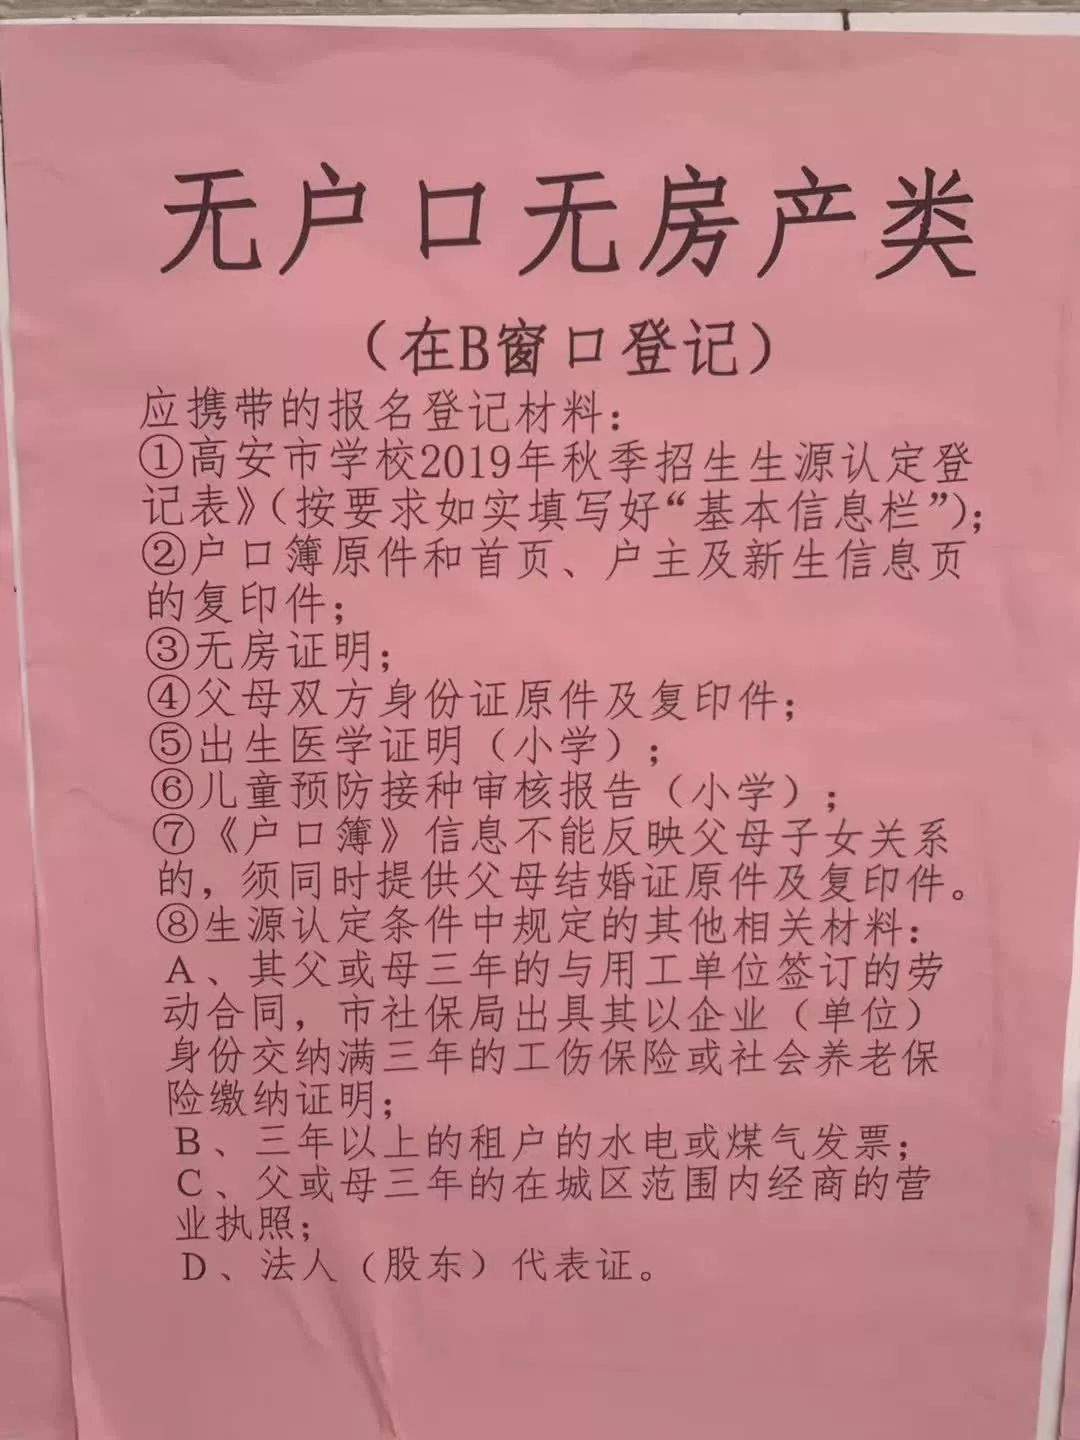 无户口无房产类
（在B窗口登记）
应携带的报名登记材料：
①高安市学校2019年秋季招生生源认定登
记表》（按要求如实填写好“基本信息栏”）；
②户口簿原件和首页、户主及新生信息页
的复印件；
③无房证明；
④父母双方身份证原件及复印件；
⑤出生医学证明（小学）；
⑥儿童预防接种审核报告（小学）；
⑦《户口簿》信息不能反映父母子女关系
的，须同时提供父母结婚证原件及复印件。
⑧生源认定条件中规定的其他相关材料：
A、其父或母三年的与用工单位签订的劳
动合同，市社保局出具其以企业（单位）
身份交纳满三年的工伤保险或社会养老保
险缴纳证明；
B、三年以上的租户的水电或煤气发票；
C、父或母三年的在城区范围内经商的营
业执照；
D、法人（股东）代表证。